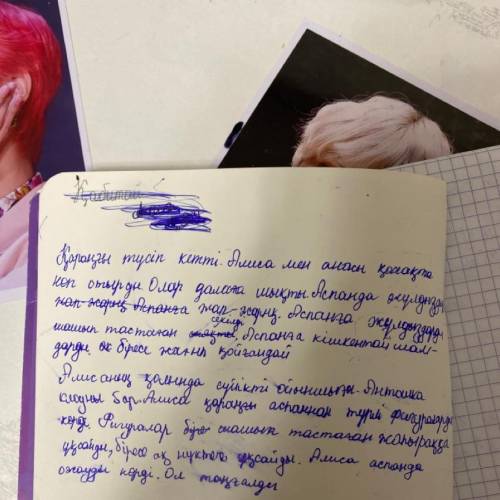 Қараңғы түсіп кетті. Алиса мен анасы қонақта
көп отырды. Олар далаға шықты. Аспанда жұлдыздар
жап-жарық Аспанға жап-жарық. Аспанға жұлдыздарды
шашып тастаған секілді. Аспанға кішкентай шам-
дарды біреу жағып қойғандай
Алисаның қолында сүйікті ойыншығы. Антошка
клоуны бар. Алиса қараңғы аспаннан түрлі фигураларды
көрді. Фигуралар біреу шашып тастаған жапыраққа
ұқсайды, біресе ақ нүктеге ұқсайды. Алиса аспанда
ожауды көрді. Ол таңғалды